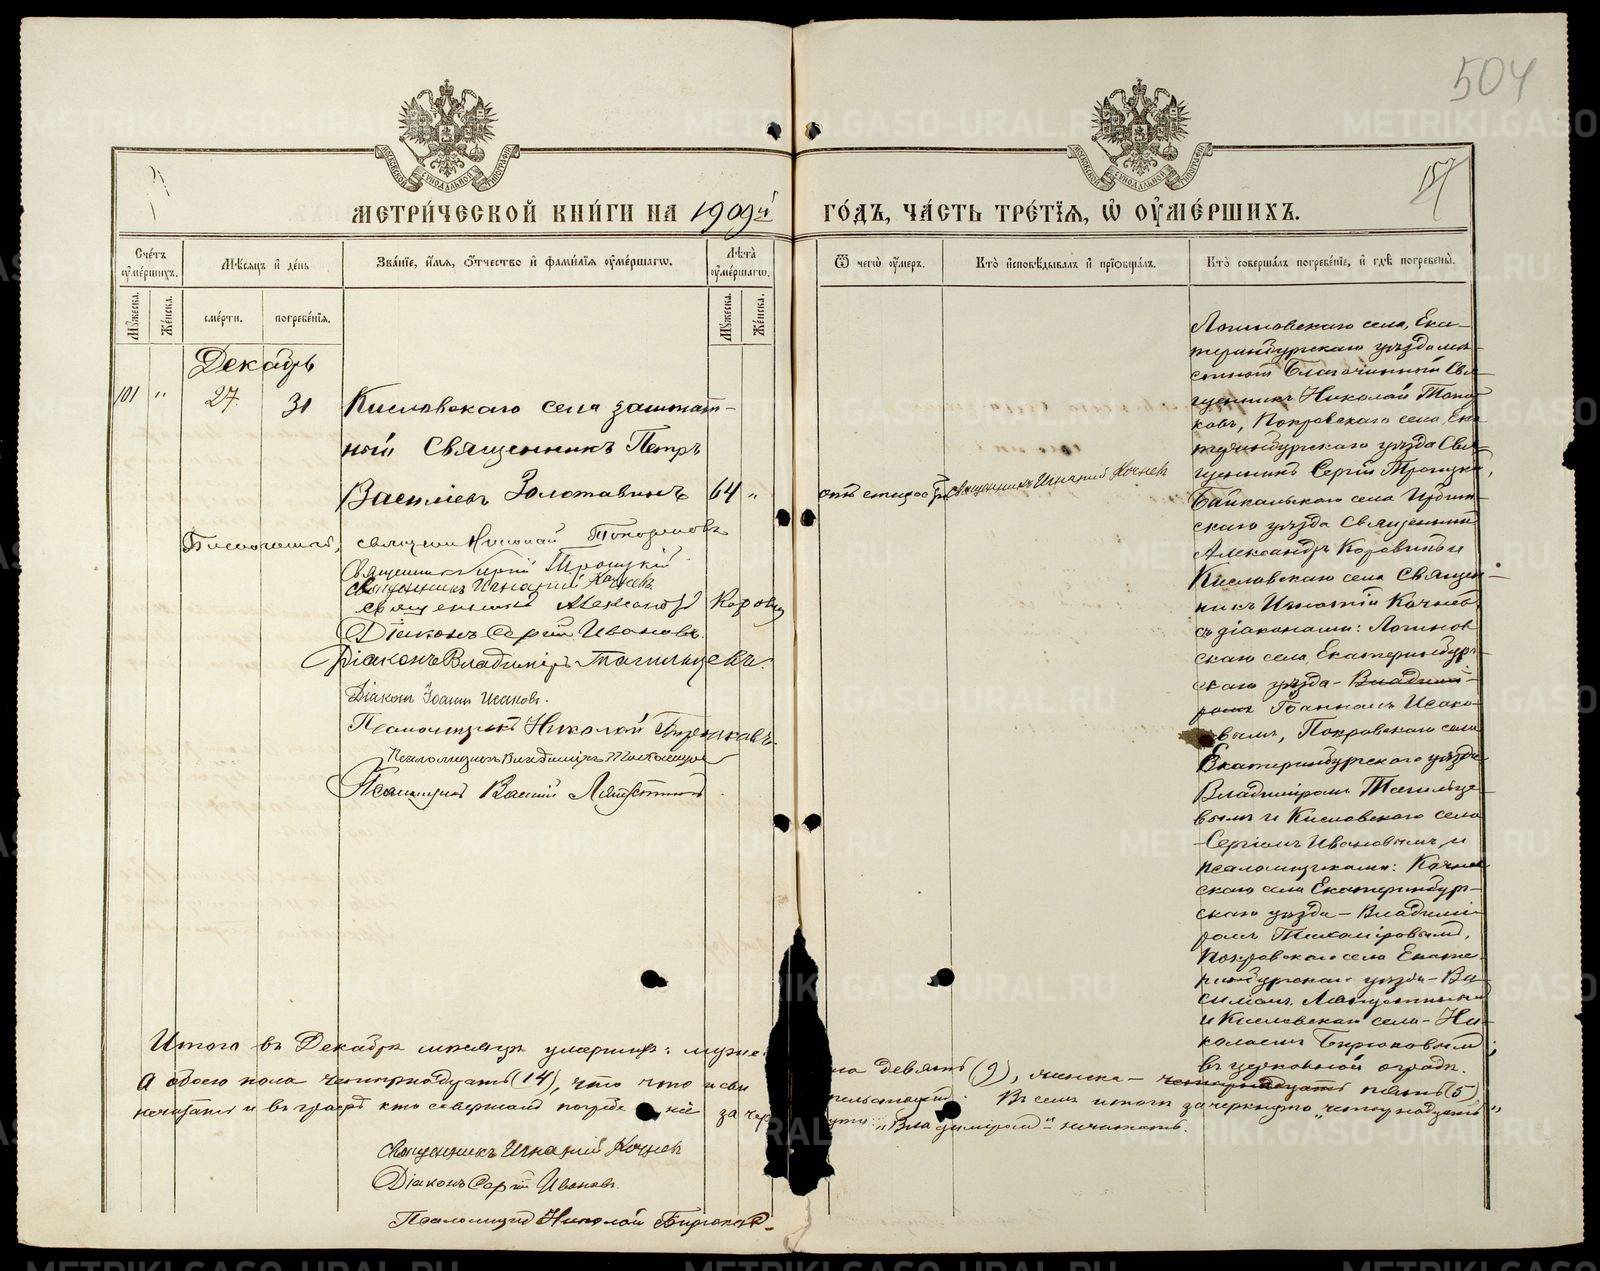 504
157
МЕТРИ́ЧЕСКОЙ КНИ́ГИ НА 1909й
ГО́ДЪ, ЧА́СТЬ ТРЕ́ТІѦ, Ѿ ОУ҆МЕ́РШИХЪ.
Сче́тъ оу҆ме́ршихъ.
Мѣ́сѧцъ и҆ де́нь
Зва́нїе, и҆́мѧ, ѻ҆́тчество и҆ фами́лїѧ оу҆ме́ршагѡ.
Лѣ́та оу҆ме́ршагѡ.
Ѿ чегѡ̀ оу҆́меръ.
Кто̀ и҆сповѣ́дывалъ и҆ прїѻбща́лъ.
Кто̀ соверша́лъ погребе́нїе, и҆ гдѣ̀ погребены̀.
Мꙋ́жеска.
Же́нска.
сме́рти.
погребе́нїѧ.
Мꙋ́жеска.
Же́нска.
Декабрь
101 " 27. 31 Кисловскаго села заштат-
ный Священникъ Петръ
Васильевъ Золотавинъ 64 "
отъ старости
Священникъ Игнатій Кочневъ
Логиновскаго села, Ека-
теринбургскаго уѣзда мѣ-
стный Благочинный Свя-
щенникъ Николай Топор-
ковъ, Покровскаго села Ека-
теринбургскаго уѣзда Свя-
щенникъ Сергій Троицкій,
скаго уѣзда Священникъ
Александръ Коровинъ и
Кисловскаго села Священ-
никъ Игнатій Кочневъ
съ діаконами: Логинов-
скаго села, Екатеринбург-
скаго уѣзда - Владимі-
ромъ Іоанномъ Исако-
вымъ, Покровскаго села
Екатеринбургскаго уѣзда
Владиміромъ Тагильце-
вымъ и Кисловскаго села
Сергіемъ Ивановымъ, и
псаломщиками:
скаго села Екатеринбург-
скаго уѣзда - Владимі-
ромъ Тихоміровымъ,
Покровскаго села Екате-
ринбургскаго уѣзда - Ва-
силіемъ
и Кисловскаго села - Ни-
колаемъ Бирюковымъ;
въ церковной оградѣ.
священникъ Николай
Священникъ Сергій Троицкій
Священникъ Игнатій Кочневъ
священникъ Александръ Коровинъ
Діаконъ Сергій Ивановъ.
Діаконъ Владиміръ Тагильцевъ.
Діаконъ Іоаннъ Исаковъ.
Псаломщикъ Николай Бирюковъ.
Псаломщикъ Владиміръ
Псаломщикъ Василій
Итого въ Декабрѣ мѣсяцѣ умерших: муже
на девять (9), женска - четырнадцать пять (5)
а обоего пола четырнадцать (14), что
Въ семъ итогѣ зачеркнуто "четырнадцать"
не читать и въ графѣ кто совершалъ погребеніе зачер
"Владиміромъ" не читать.
Священникъ Игнатій Кочневъ
Діаконъ Сергій Ивановъ.
Псаломщикъ Николай Бирюковъ.
METRIKI.GASO-URAL.RU